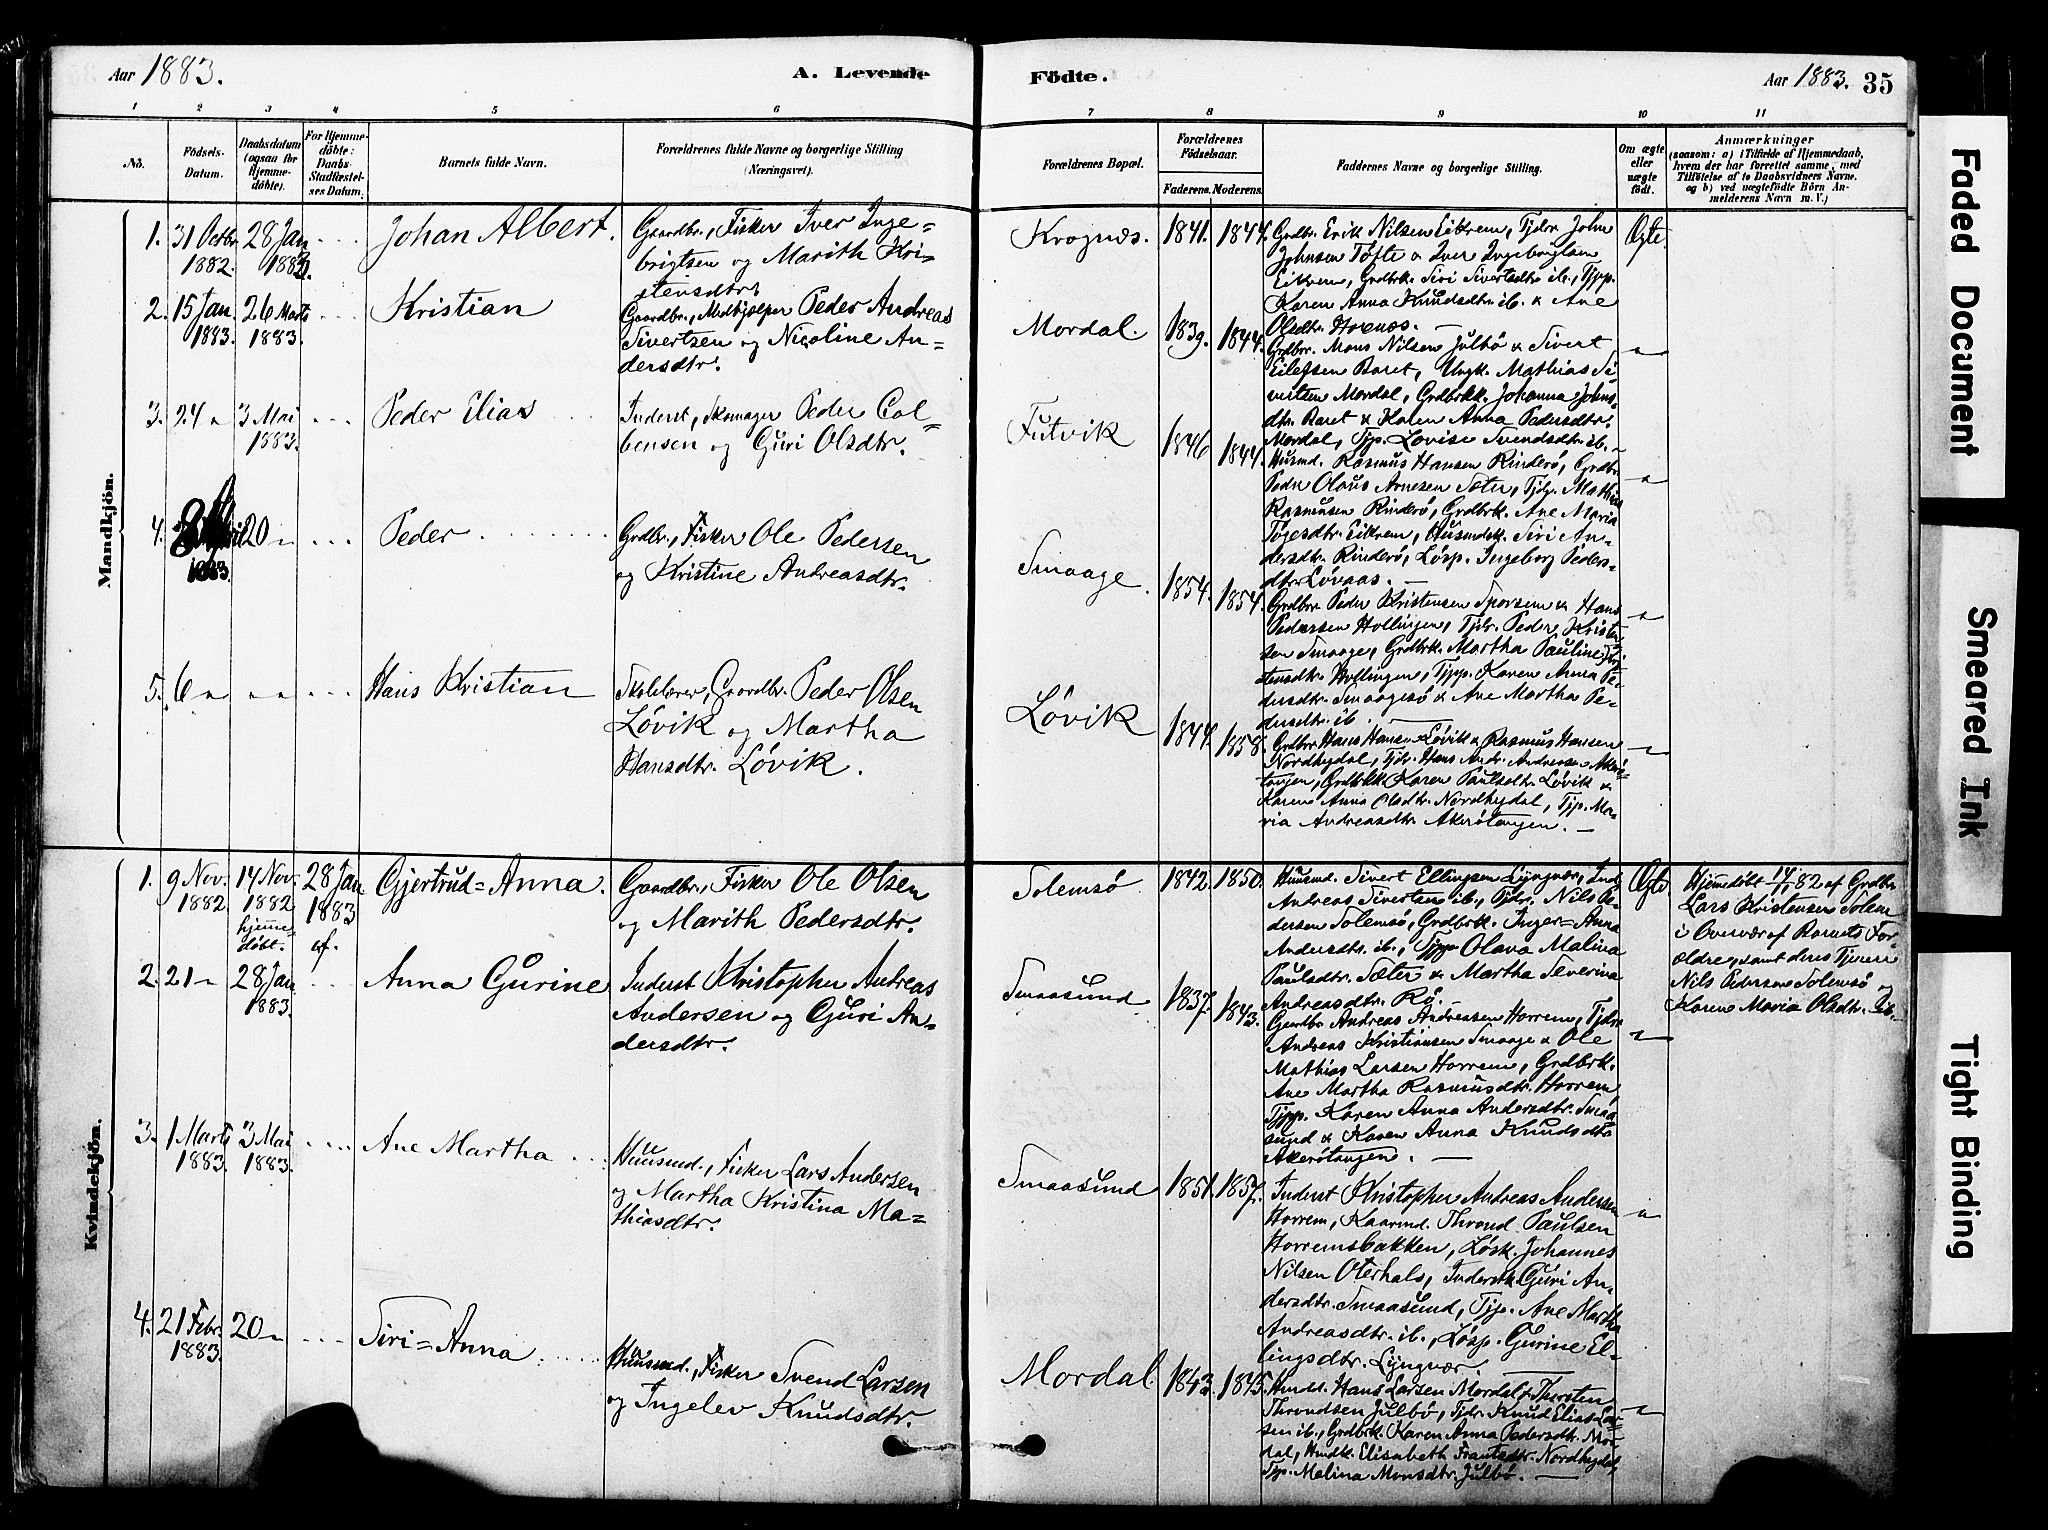 Aar 1883.
A. Levende
Födte.
Aar 1883. 35
1 2 3 4 5 6 7 8 9 10 11
No.
Födsels-
Datum.
Daabsdatum
(ogsaa for
Hjemme-
döbte).
For Hjemme-
döbte:
Daabs-
Stadfæstel-
ses Datum.
Barnets fulde Navn.
Forældrenes fulde Navne og borgerlige Stilling
(Næringsvei).
Forældrenes Bopæl.
Forældrenes
Födselsaar.
Faderens. Moderens.
Faddernes Navne og borgerlige Stilling.
Om ægte
eller
uægte
födt.
Anmærkninger
(saasom: a) i Tilfælde af Hjemmedaab,
hvem der har forrettet samme, med
Tilföielse af to Daabsvidners Navne.
og b) ved uægtefödte Börn An-
melderens Navn m. V.)
Mandkjön.
1. 31 Octbr
1882.
28 Jan
1883.
Johan Albert.
Gaardbr., Fisker Iver Inge-
brigtsen og Marith Kri-
stensdtr.
Krognæs. 1841. 1844.
Grdbr. Erik Nilsen Eikrem, Tjdr. John
Johnsen Tøfte & Iver Ingebrigtsen
Eikrem, Grdbrk. Siri Sivertsdtr. ib., Tjpp.
Karen Anna Knudsdtr. ib. & Ane
Olsdtr. Hornæs. —
Ægte.
2. 15 Jan.
1883.
26 Marts
1883.
Kristian
Gaardbr., Medhjælper Peder Andreas
Sivertsen og Nicoline An-
dersdtr.
Mordal. 1839. 1844.
Grdbr. Mons Nilsen Julbø & Sivert
Eilefsen Baret, Ungk. Mathias Si-
vertsen Mordal, Grdbrkk. Johanna Johns-
dtr. Baret & Karen Anna Pedersdtr.
Mordal, Tjp. Lovise Svendsdtr. ib. —
3. 24 " 3 Mai
1883.
Peder Elias
Inderst, Skomager Peder Col-
bensen og Guri Olsdtr.
Futvik 1846 1844.
Husmd. Rasmus Hansen Rinderø, Grdbr.
Peder Olaus Arnesen Sæter, Tjdr. Mathias
Rasmussen Rinderø, Grdbrk. Ane Maria
Togesdtr. Eikrem, Husmdsk. Siri An-
dersdtr. Rinderø, Løsp. Ingeborg Peders-
dtr. Løvaas. —
4.
1883.
20 "
Peder
Grdbr., Fisker Ole Pedersen
og Kristine Andreasdtr.
Smaage. 1854. 1854.
Grdbr. Peder Kristensen Sporsem & Hans
Pedersen Hollingen, Tjdr. Peder Kristen-
sen Smaage, Grdbrk. Martha Pauline Kri-
stensdtr. Hollingen, Tjpp. Karen Anna Pe-
dersdtr. Smaagesø & Ane Martha Pe-
dersdtr. ib. —
5. 6 " " "
Hans Kristian
Skolelærer, Gaardbr. Peder Olsen
Løvik og Martha
Hansdtr. Løvik.
Løvik 1844. 1858.
Grdbr. Hans Hansen Løvik & Rasmus Hansen
Nordhydal, Tjdr. Hans Andr. Andersen Akerø-
tangen, Grdbrkk. Karen Paulsdtr. Løvik &
Karen Anna Olsdtr. Nordhydal, Tjp. Ma-
ria Andreasdtr. Akerøtangen. —
Kvindekjön.
1. 9 Nov.
1882.
14 Nov.
1882
hjemme-
døbt.
28 Jan
1883
Gjertrud=Anna.
Gaardbr., Fisker Ole Olsen
og Marith Pedersdtr.
Solemsø 1842. 1850.
Huusmd. Sivert Ellingsen Lyngvær, Ind.
Andreas Sivertsen ib., Tjdr. Nils Pe-
dersen Solemsø, Grdbrk. Inger-Anna
Andersdtr. ib., Tjpp. Olava Malina
Paulsdtr. Sæter & Martha Severina
Andreasdtr. Rø. —
Ægte
Hjemmedøbt 14/11 82 af Grdbr.
Lars Kristensen Solem
i Overvær af Barnets For-
ældre, samt deres Tjenere
Nils Pedersen Solemsø og
Karen Maria Olsdtr. ib.
2. 21 " 28 Jan
1883.
Anna Gurine
Inderst Kristopher Andreas
Andersen og Guri An-
dersdtr.
Smaasund 1837. 1843.
Gaardbr. Andreas Andreassen Horrem, Tjdr.
Andreas Kristiansen Smaage & Ole
Mathias Larsen Horrem, Grdbrk.
Ane Martha Rasmusdtr. Horrem
Tjpp. Karen Anna Andersdtr. Smaa-
sund & Karen Anna Knudsdtr.
Akerøtangen. —
3. 1 Marts
1883.
3 Mai
1883.
Ane Martha
Huusmd., Fisker Lars Andersen
og Martha Kristina Ma-
thiasdtr.
Smaasund 1851. 1857.
Inderst Kristopher Andreas Andersen
Horrem, Kaarmd. Thrond Paulsen
Horremsbakken, Løsk. Johannes
Nilsen Oterhals, Inderstk. Guri An-
dersdtr. Smaasund, Tjp. Ane Martha
Andreasdtr. ib., Løsp. Gurine El-
lingsdtr. Lyngvær.
4. 21 Febr.
1883.
20 "
Siri=Anna
Huusmd., Fisker Svend Larsen
og Ingelev Knudsdtr.
Mordal. 1843. 1845.
Husmd. Hans Larsen Mordal & Thorsten
Throndsen Julbø, Tjdr. Knud Elias Lar-
sen ib., Grdbrk. Karen Anna Pedersdtr. Mor-
dal, Hmdk. Elisabeth Frantsdtr. Nordhydal,
Tjp. Malina Monsdtr. Julbø. —
Faded Document
Smeared Ink
Tight Binding